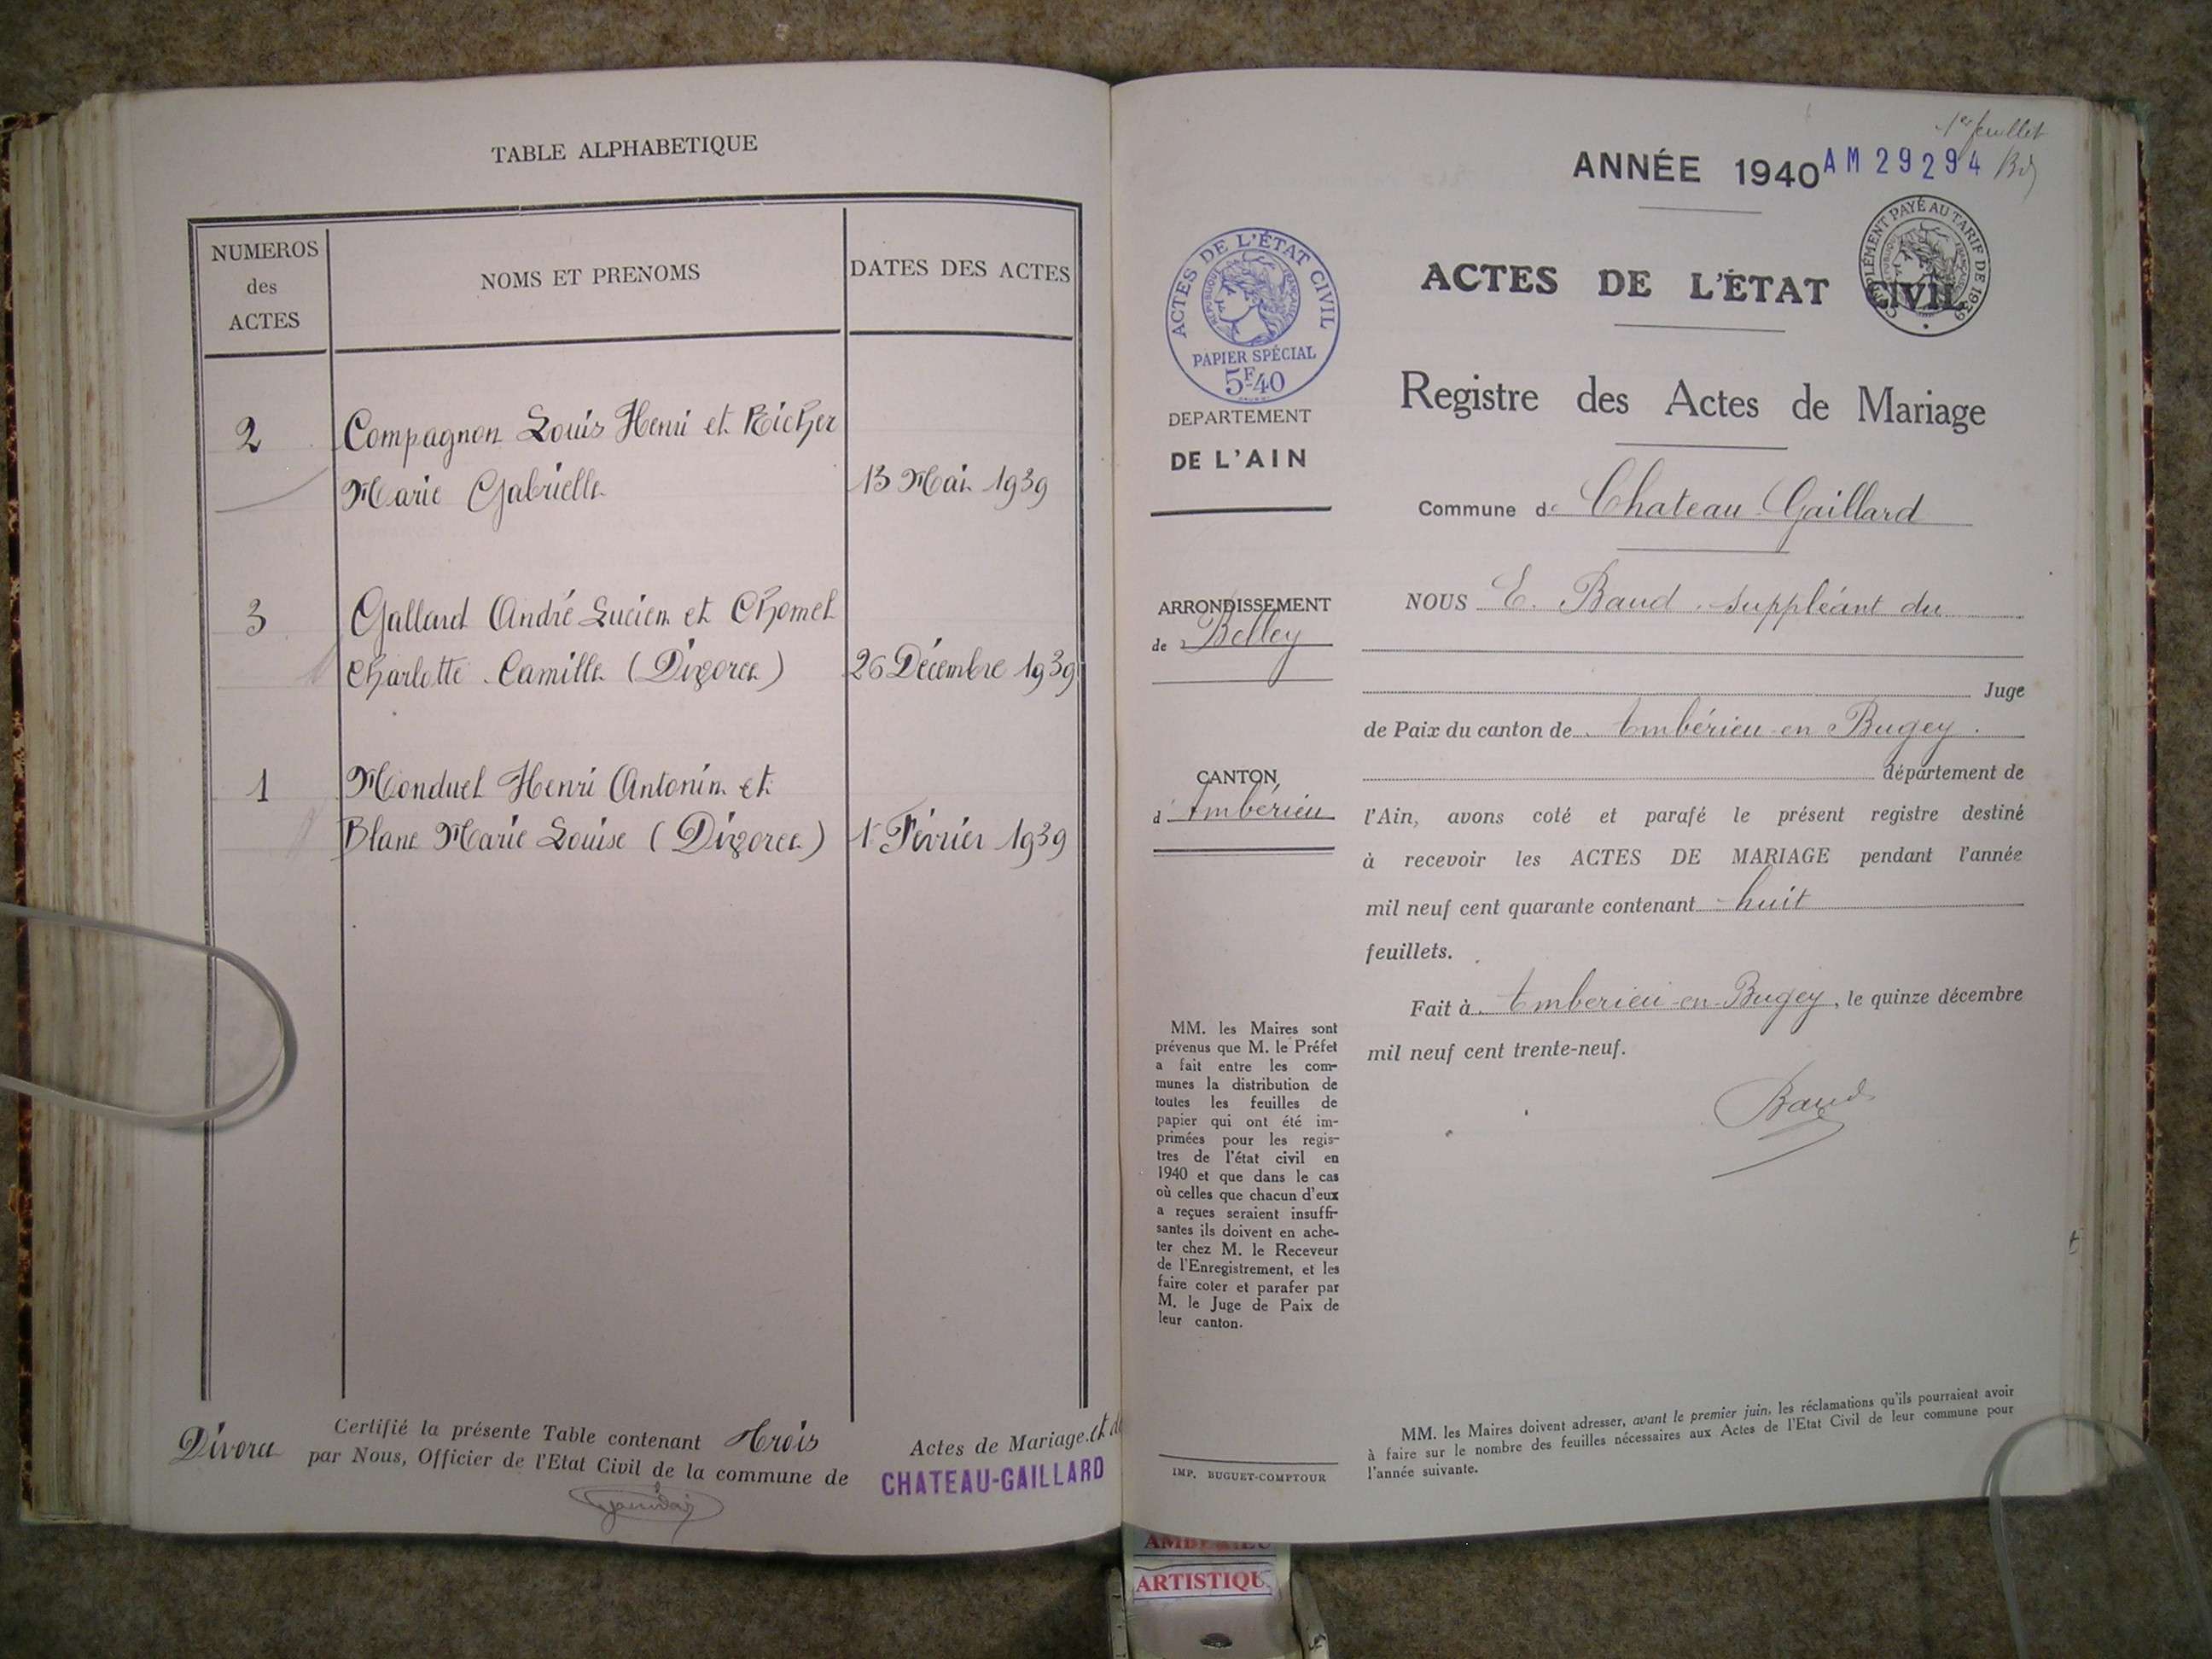 TABLE ALPHABETIQUE
NUMEROS
des
ACTES
NOMS ET PRENOMS
DATES DES ACTES
2
Compagnon Louis Henri et Richer
Marie Gabrielle
13 Mai 1939
3
Gallard André Lucien et Chomel
Charlotte Camille (Divorce)
26 Décembre 1939
1
Monduel Henri Antonin et
Blanc Marie Louise (Divorce)
1r Février 1939
Certifié la présente Table contenant trois Actes de Mariage et de
Divorce par Nous, Officier de l'Etat Civil de la commune de CHATEAU-GAILLARD
1er feuillet
ANNÉE 1940
AM 29294
ACTES DE L'ÉTAT CIVIL
RÉPUBLIQUE FRANÇAISE
PAPIER SPÉCIAL
5F40
COMPLÉMENT PAYÉ AU TARIF DE 1939
ACTES DE L'ÉTAT CIVIL
Registre des Actes de Mariage
DEPARTEMENT
DE L'AIN
Commune de Chateau Gaillard
ARRONDISSEMENT
de Belley
CANTON
d'Ambérieu
NOUS E. Baud, suppléant du
Juge
de Paix du canton de Ambérieu-en Bugey.
département de
l'Ain, avons coté et parafé le présent registre destiné
à recevoir les ACTES DE MARIAGE pendant l'année
mil neuf cent quarante contenant huit
feuillets.
Fait à Amberieu-en-Bugey, le quinze décembre
mil neuf cent trente-neuf.
Baud
MM. les Maires sont
prévenus que M. le Préfet
a fait entre les com-
munes la distribution de
toutes les feuilles de
papier qui ont été im-
primées pour les regis-
tres de l'état civil en
1940 et que dans le cas
où celles que chacun d'eux
a reçues seraient insuffi-
santes ils doivent en ache-
ter chez M. le Receveur
de l'Enregistrement, et les
faire coter et parafer par
M. le Juge de Paix de
leur canton.
IMP. BUGUET-COMPTOUR
MM. les Maires doivent adresser, avant le premier juin, les réclamations qu'ils pourraient avoir
à faire sur le nombre des feuilles nécessaires aux Actes de l'Etat Civil de leur commune pour
l'année suivante.
AMBERIEU
ARTISTIQU